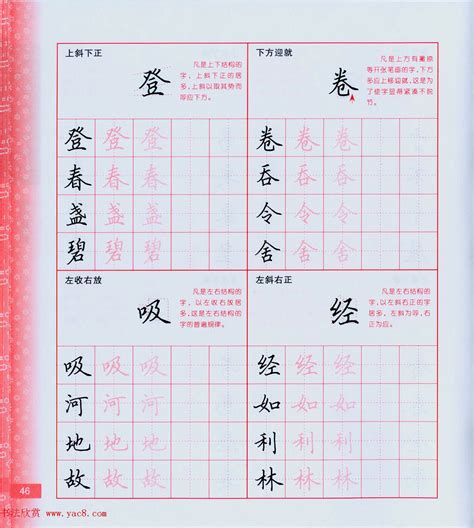 上斜下正
登
凡是上下结构的
字，上斜下正的居
多，上斜以取其势而
等应下方。
登 登 登
春 春 春
盏 盏 盏
碧 碧 碧
下方迎就
卷
凡是上方有撇捺
等开张笔画的字，下方
多应上移迎就，这是为
了使字显得紧凑不脱
节。
卷 卷 卷
吞 吞 吞
令 令 令
舍 舍 舍
左收右放
吸
凡是左右结构的
字，以左收右放居
多，这是左右结构字
的普遍规律。
吸 吸 吸
河 河 河
地 地 地
故 故 故
左斜右正
经
凡是左右结构的
字，以左斜右正的字
居多，左斜为等，右
正为应。
经 经 经
如 如 如
利 利 利
林 林 林
46
书法欣赏 www.yac8.com